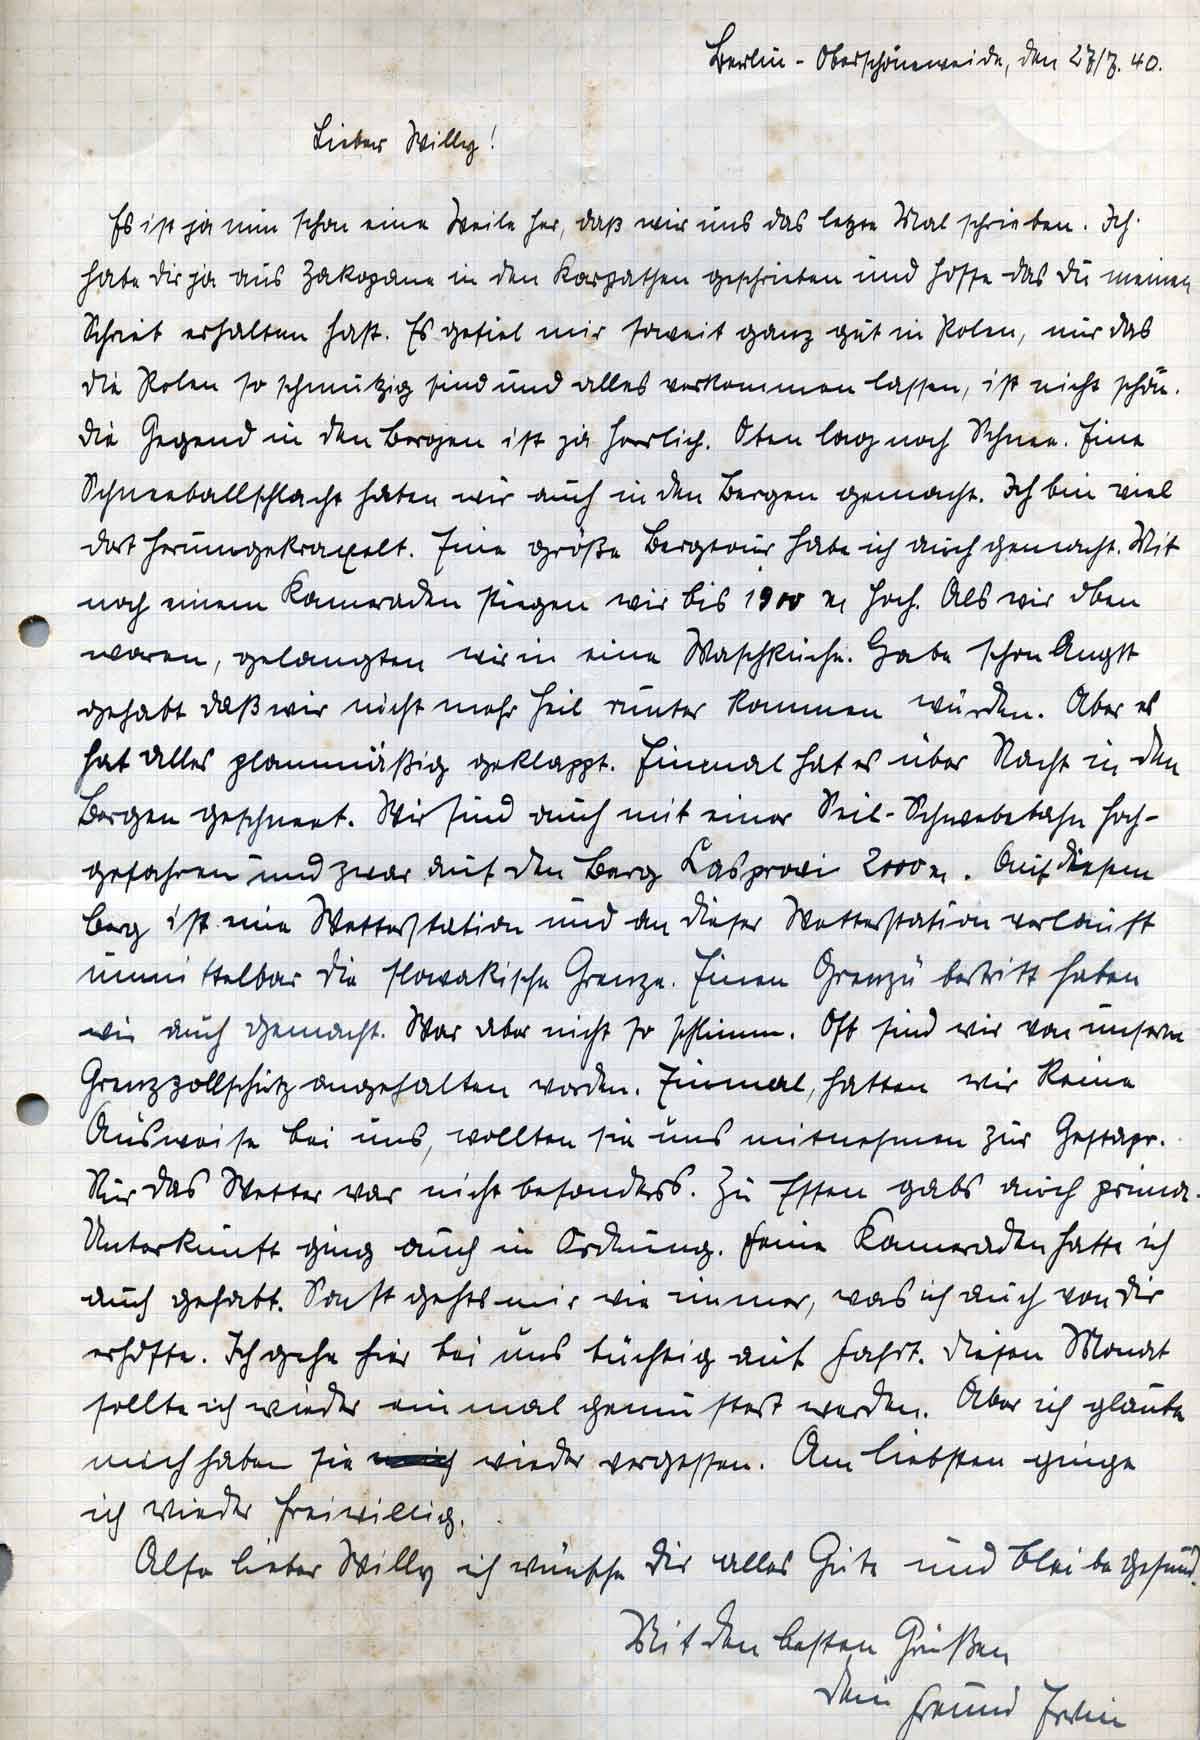 Berlin - Oberschöneweide, den 27/7. 40.
Lieber Willy!
Es ist ja nun schon eine Weile her, daß wir uns das letzte Mal schrieben. Ich
habe dir ja aus Zakopane in den Karpathen geschrieben und hoffe das du meinen
Schrieb erhalten hast. Es gefiel mir soweit ganz gut in Polen, nur das
die Polen so schmutzig sind und alles verkommen lassen, ist nicht schön.
Die Gegend in den Bergen ist ja herrlich. Oben lag noch Schnee. Eine
Schneeballschlacht haben wir auch in den Bergen gemacht. Ich bin viel
dort herumgekraxelt. Eine große Bergtour habe ich auch gemacht. Mit
noch einem Kameraden stiegen wir bis 1900 m hoch. Als wir oben
waren, gelangten wir in eine Waschküche. Habe schon Angst
gehabt daß wir nicht mehr heil runter kommen würden. Aber es
hat alles planmäßig geklappt. Einmal hat es über Nacht in den
Bergen geschneet. Wir sind auch mit einer Seil-Schwebebahn hoch-
gefahren und zwar auf den Berg Kasprowi 2000 m. Auf diesem
Berg ist eine Wetterstation und an dieser Wetterstation verläuft
unmittelbar die slowakische Grenze. Einen Grenzübertritt haben
wir auch gemacht. War aber nicht so schlimm. Oft sind wir von unserm
Grenzzollschutz angehalten worden. Einmal, hatten wir keine
Ausweise bei uns, wollten sie uns mitnehmen zur Gestapo.
Nur das Wetter war nicht besonders. Zu Essen gabs auch prima.
Unterkunft ging auch in Ordnung. Feine Kameraden hatte ich
auch gehabt. Sonst gehts mir wie immer, was ich auch von dir
erhoffe. Ich gehe hier bei uns tüchtig auf Fahrt. Diesen Monat
sollte ich wieder einmal gemustert werden. Aber ich glaube
mich haben sie wieder vergessen. Am liebsten ginge
ich wieder freiwillig.
Also lieber Willy ich wünsche dir alles Gute und bleibe gesund.
Mit den besten Grüßen
dein Freund Erwin